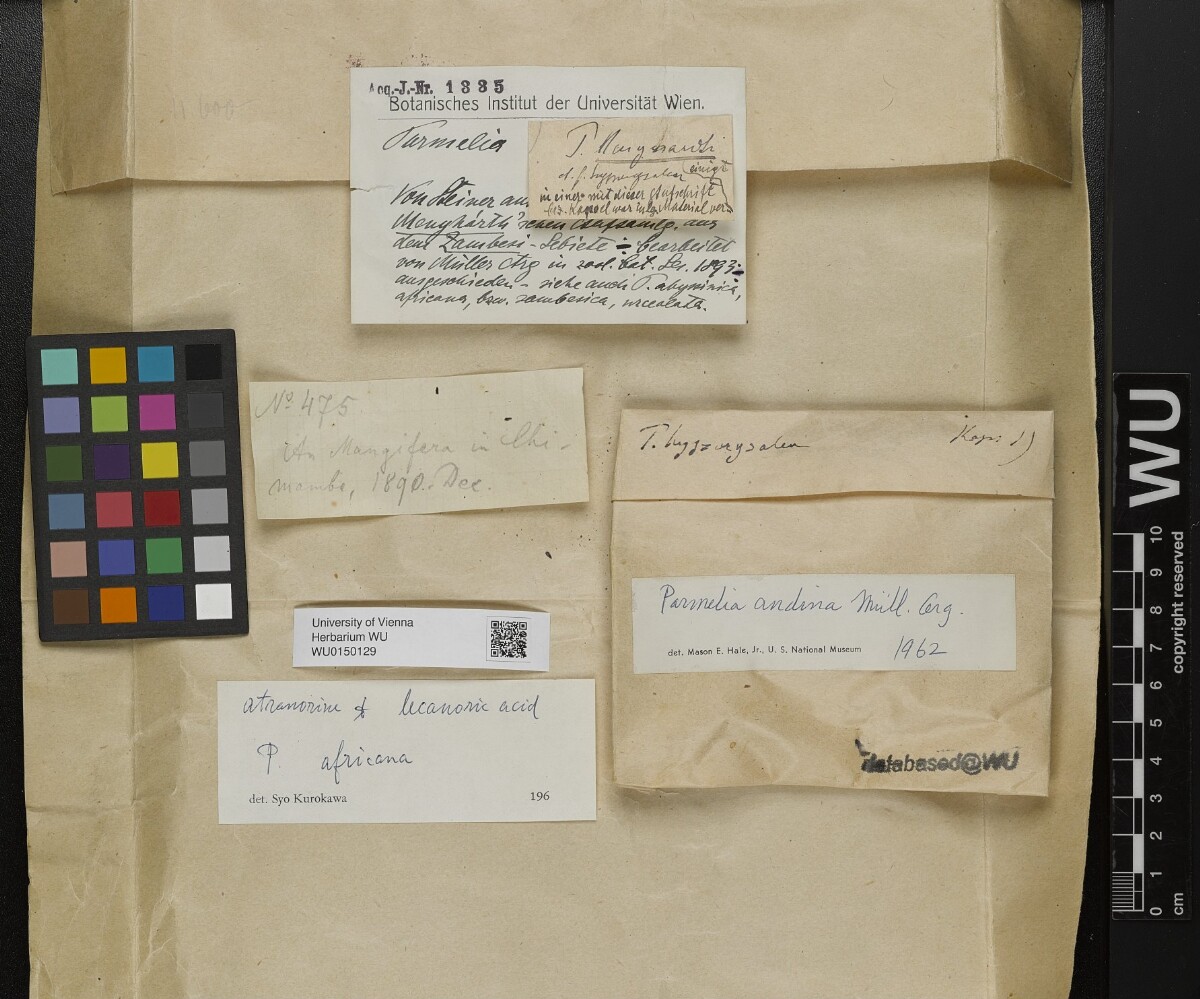 Acq.-J.-Nr. 1335
Botanisches Institut der Universität Wien.
Parmelia
einigt
in einer mit dieser Aufschrift
bez. Kapsel war insg. Material ver-
Von Steiner aus
Menyhárth'schen Aufsamlg. aus
dem Zambesi-Gebiete - bearbeitet
von Müller Arg in zool. bot. Ges. 1893-
ausgeschieden - siehe auch P. abyssinica,
africana, bzw. zambesica, urceolata.
No 475
An Mangifera in Chi-
mombe, 1890. Dec.
P. hypzorysalea
Kaps 1)
Parmelia andina Müll. Arg.
det. Mason E. Hale, Jr., U. S. National Museum 1962
University of Vienna
Herbarium WU
WU0150129
atranorine & lecanoric acid
P. africana
det. Syo Kurokawa 196
databased@WU
WU
10
9
8
7
6
5
4
3
2
1
0
cm
copyright reserved